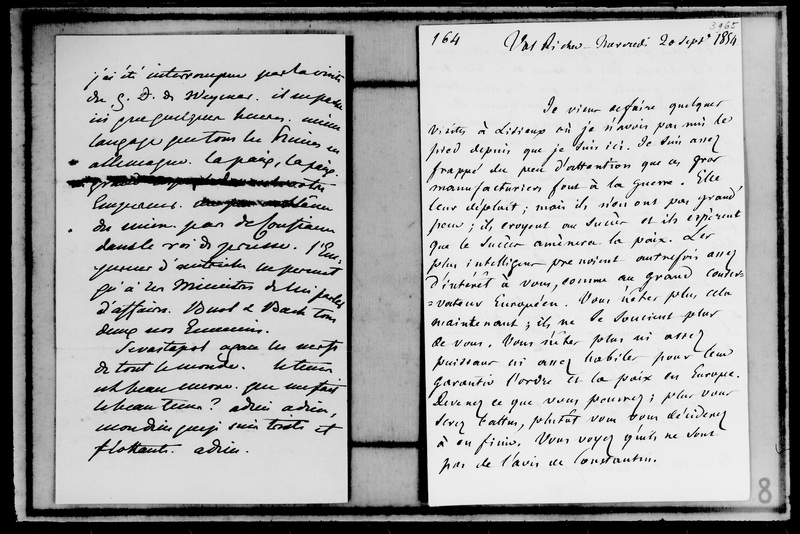 j'ai été interrompue par la visite
du g. D. de Weymar. il me parle
ici que quelques heures. même
langage que tous les Princes en
allemagne. la paix, la paix.
Empereurs.
du mien. pas de confiance
dans le roi de prusse. l'Em-
pereur d'autriche ne permet
qu'à ses Ministres de lui parler
d'affaires. Buol & Bach tous
deux nos Ennemis.
Sevastopol agace les nerfs
de tout le monde. le tems
est beau même. que me fait
le beau tems? adieu adieu,
mon dieu que je suis triste et
flottante. adieu.
3965
164 Val Richer - Mercredi 20 Sept. 1854
Je viens de faire quelques
visites à Lisieux où je n'avois pas mis le
pied depuis que je suis ici. Je suis assez
frappé du peu d'attention que ces gros
manufacturiers font à la guerre. Elle
leur déplait; mais ils n'en ont pas grand'
peur; ils croyent au succès et ils espèrent
que le succès amènera la paix. Les
plus intelligens prenoient autrefois assez
d'intérêt à vous, comme au grand conser-
=vateur Européen. Vous n'êtes plus cela
maintenant; ils ne se soucient plus
de vous. Vous n'êtes plus ni assez
puissans ni assez habiles pour leur
garantir l'ordre et la paix en Europe.
Devenez ce que vous pourrez; plus vous
serez battus, plutôt vous vous déciderez
à en finir. Vous voyez qu'ils ne sont
pas de l'avis de Constantin.
8